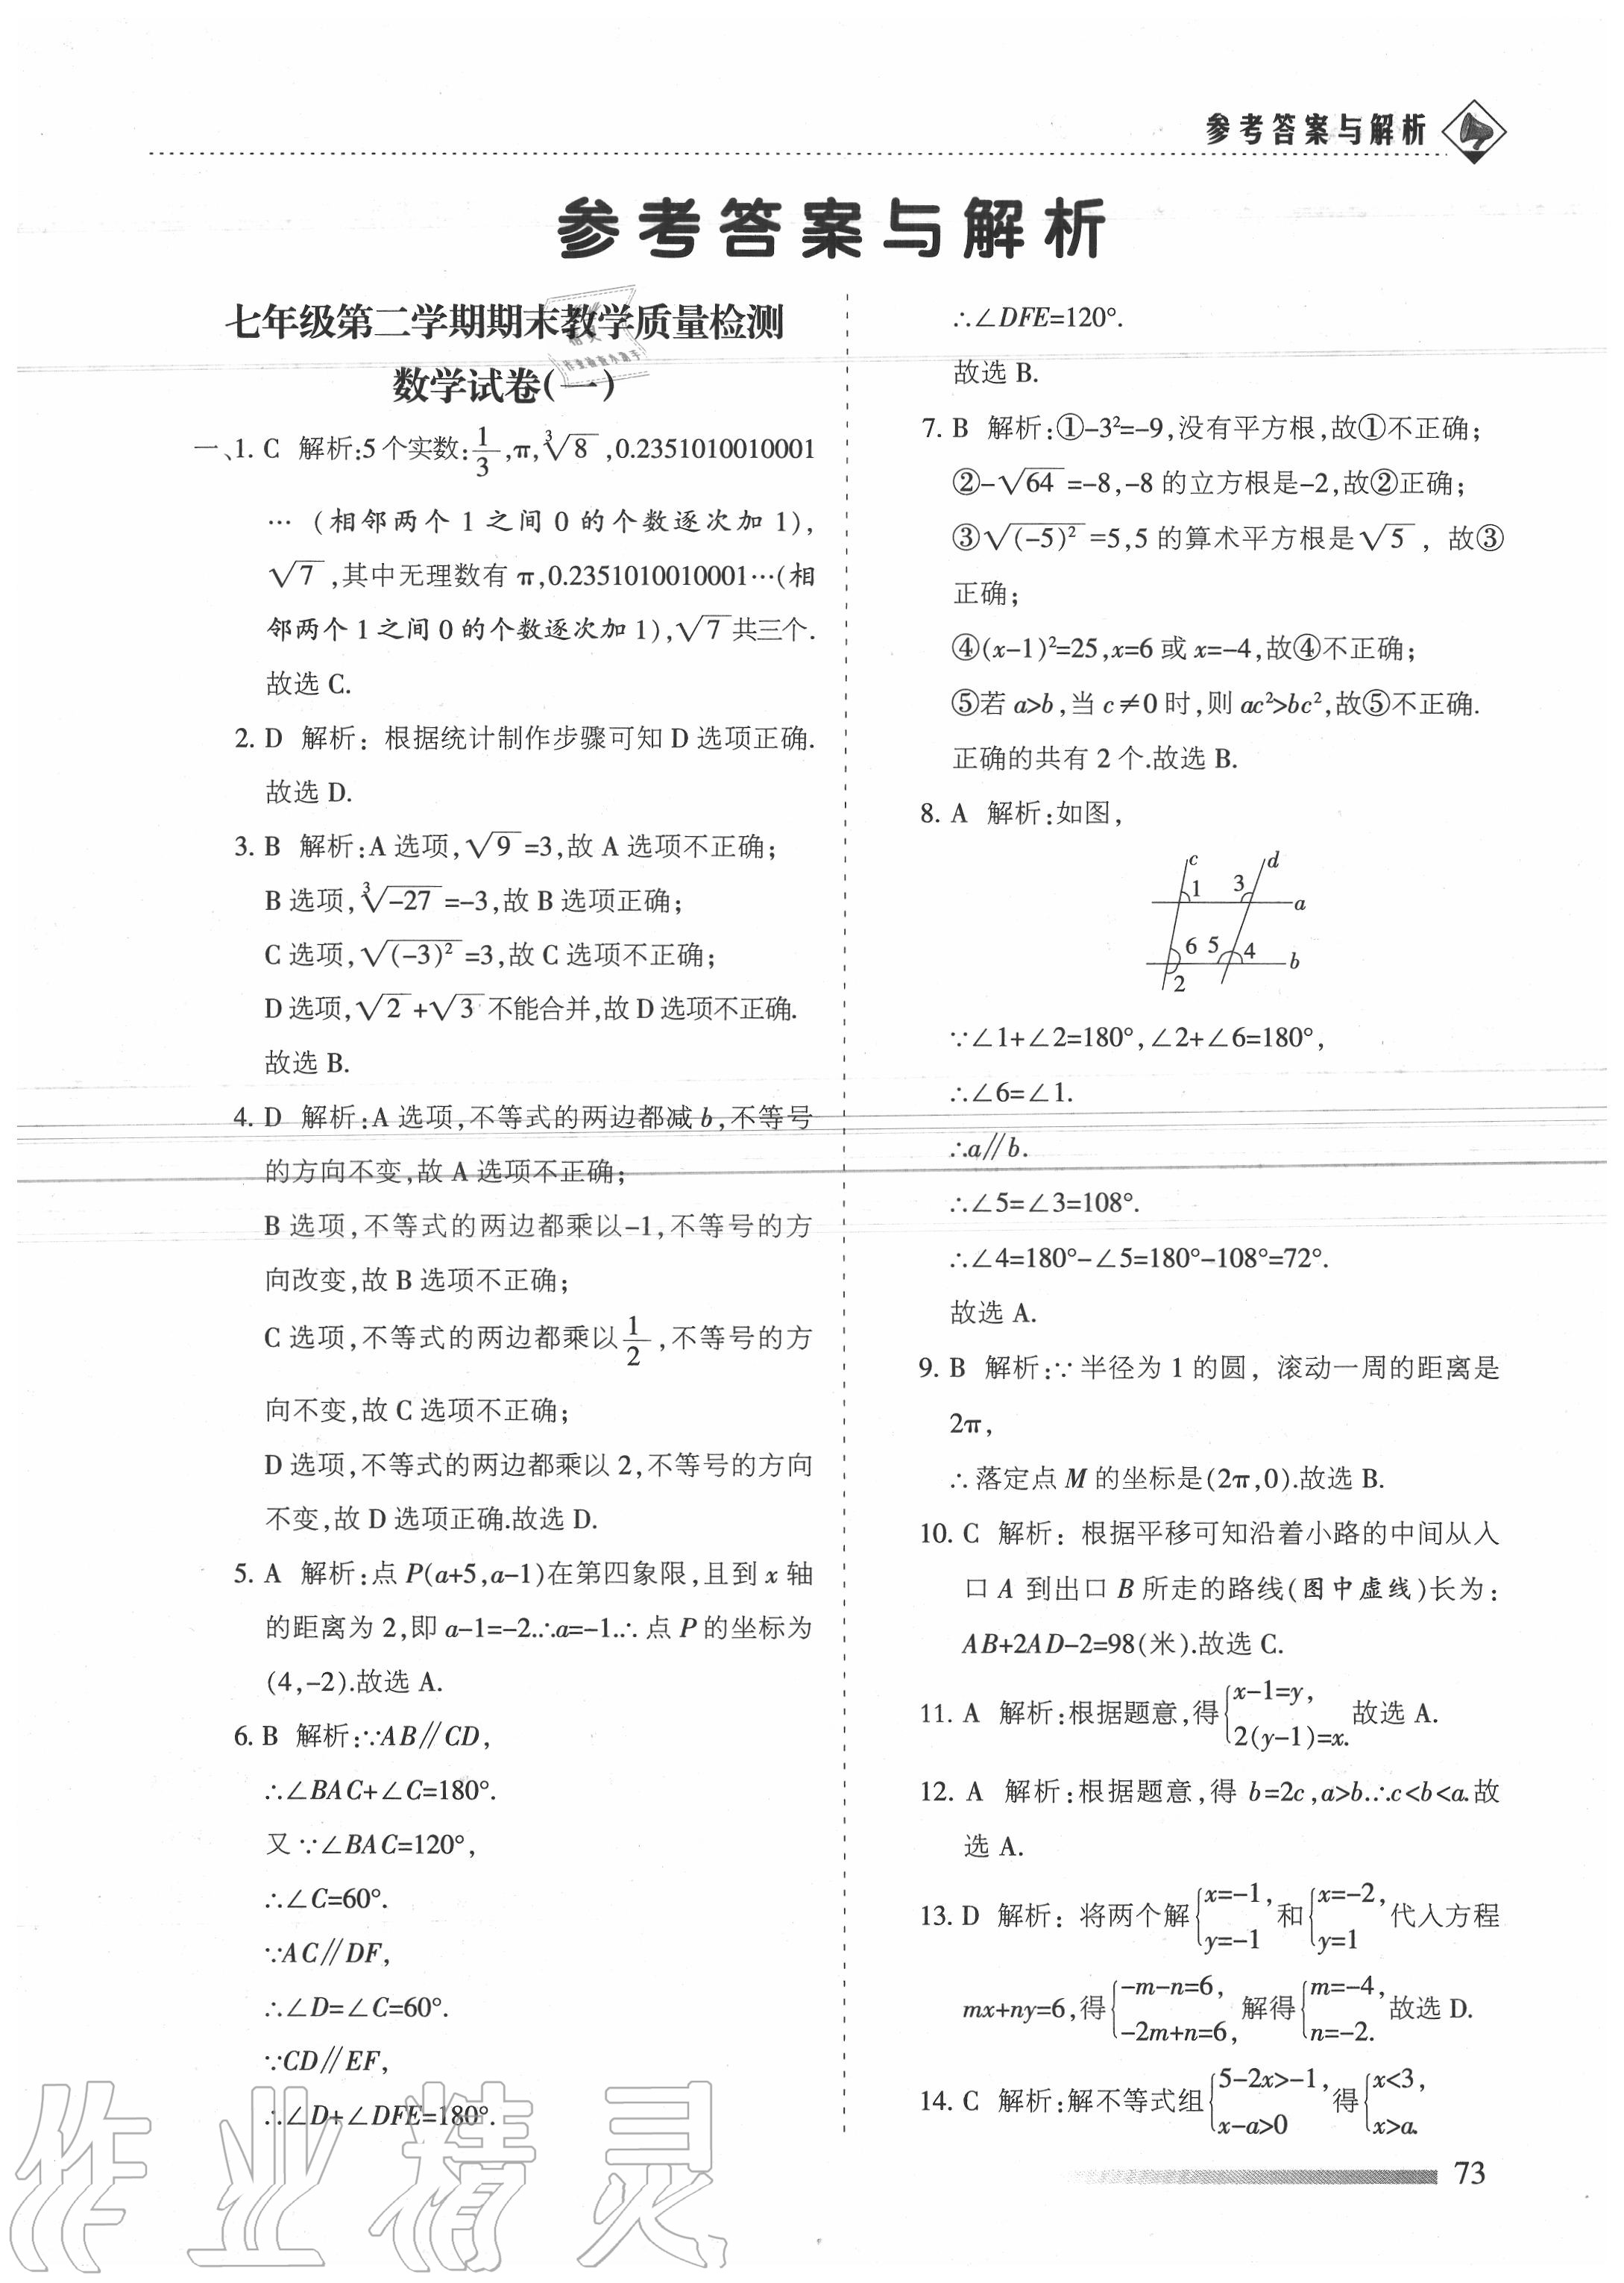 参考答案与解析
参考答案与解析
七年级第二学期期末教学质量检测
数学试卷(一)
一、1. C 解析:5个实数:1/3,π,∛8,0.2351010010001
…(相邻两个1之间0的个数逐次加1),
√7,其中无理数有π,0.2351010010001…(相
邻两个1之间0的个数逐次加1),√7共三个.
故选C.
2. D 解析:根据统计制作步骤可知D选项正确.
故选D.
3. B 解析:A选项,√9=3,故A选项不正确;
B选项,∛-27=-3,故B选项正确;
C选项,√(-3)²=3,故C选项不正确;
D选项,√2+√3不能合并,故D选项不正确.
故选B.
4. D 解析:A选项,不等式的两边都减b,不等号
的方向不变,故A选项不正确;
B选项,不等式的两边都乘以-1,不等号的方
向改变,故B选项不正确;
C选项,不等式的两边都乘以1/2,不等号的方
向不变,故C选项不正确;
D选项,不等式的两边都乘以2,不等号的方向
不变,故D选项正确.故选D.
5. A 解析:点P(a+5,a-1)在第四象限,且到x轴
的距离为2,即a-1=-2.∴a=-1.∴点P的坐标为
(4,-2).故选A.
6. B 解析:∵AB∥CD,
∴∠BAC+∠C=180°.
又∵∠BAC=120°,
∴∠C=60°.
∵AC∥DF,
∴∠D=∠C=60°.
∵CD∥EF,
∴∠D+∠DFE=180°.
∴∠DFE=120°.
故选B.
7. B 解析:①-3²=-9,没有平方根,故①不正确;
②-√64=-8,-8的立方根是-2,故②正确;
③√(-5)²=5,5的算术平方根是√5,故③
正确;
④(x-1)²=25,x=6或x=-4,故④不正确;
⑤若a>b,当c≠0时,则ac²>bc²,故⑤不正确.
正确的共有2个.故选B.
8. A 解析:如图,
c d
1 3
a
6 5 4
b
2
∵∠1+∠2=180°,∠2+∠6=180°,
∴∠6=∠1.
∴a∥b.
∴∠5=∠3=108°.
∴∠4=180°-∠5=180°-108°=72°.
故选A.
9. B 解析:∵半径为1的圆,滚动一周的距离是
2π,
∴落定点M的坐标是(2π,0).故选B.
10. C 解析:根据平移可知沿着小路的中间从入
口A到出口B所走的路线(图中虚线)长为:
AB+2AD-2=98(米).故选C.
11. A 解析:根据题意,得{x-1=y, 2(y-1)=x. 故选A.
12. A 解析:根据题意,得b=2c,a>b.∴c<b<a.故
选A.
13. D 解析:将两个解{x=-1, y=-1和{x=-2, y=1代入方程
mx+ny=6,得{-m-n=6, -2m+n=6, 解得{m=-4, n=-2. 故选D.
14. C 解析:解不等式组{5-2x>-1, x-a>0 得{x<3, x>a.
73
作业精灵